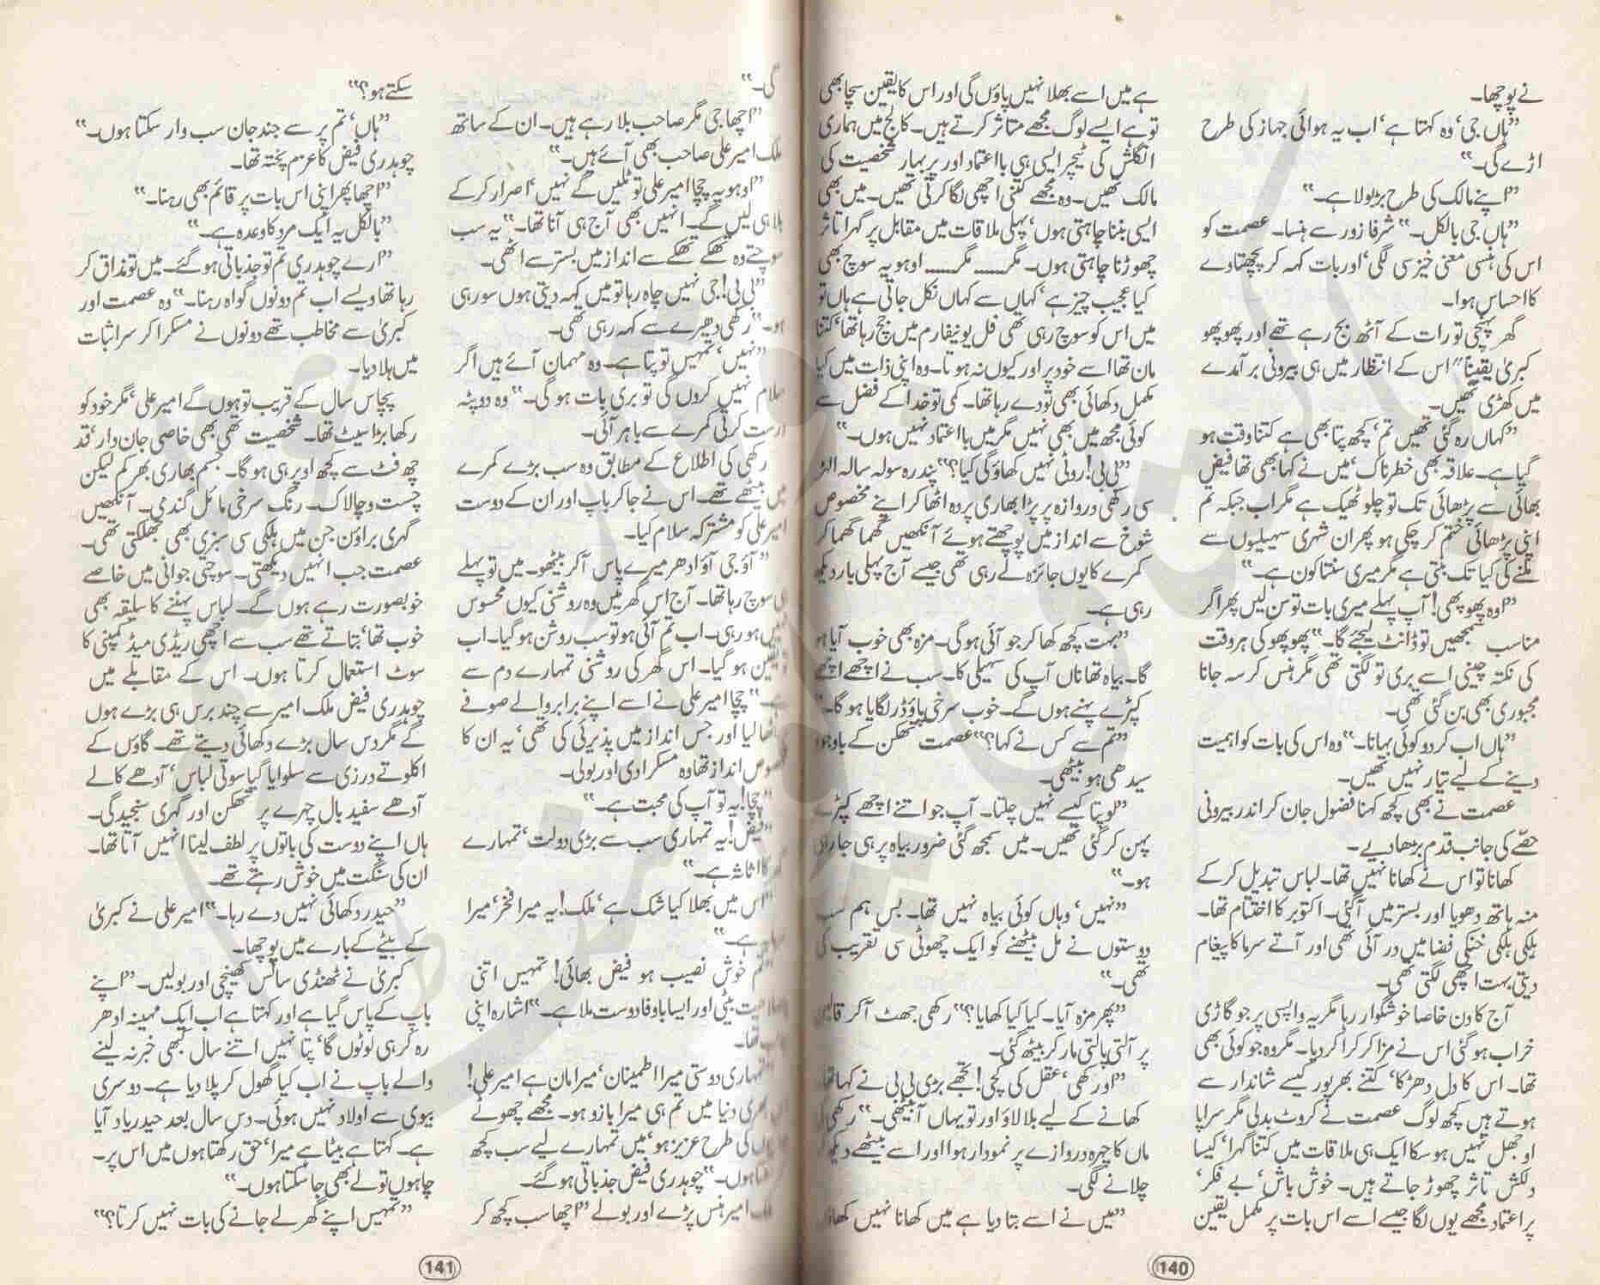 نے پوچھا۔
”ہاں جی‘ وہ کہتا ہے‘ اب یہ ہوائی جہاز کی طرح
اڑے گی۔“
”اپنے مالک کی طرح بڑبولا ہے۔“
”ہاں جی بالکل۔“ شرفا زور سے ہنسا۔ عصمت کو
اس کی ہنسی معنی خیز سی لگی‘ اور بات کہہ کر پچھتاوے
کا احساس ہوا۔
گھر پہنچی تو رات کے آٹھ بج رہے تھے اور پھوپھو
کبریٰ یقیناً اس کے انتظار میں ہی بیرونی برآمدے
میں کھڑی تھیں۔
”کہاں رہ گئی تھیں تم‘ کچھ پتا بھی ہے کتنا وقت ہو
گیا ہے۔ علاقہ بھی خطرناک‘ میں نے کہا بھی تھا فیض
بھائی سے پڑھائی تک تو چلو ٹھیک ہے مگر اب جبکہ تم
اپنی پڑھائی ختم کر چکی ہو پھر ان شہری سہیلیوں سے
ملنے کی کیا تک بنتی ہے مگر میری سنتا کون ہے۔“
”اوہ پھوپھی! آپ پہلے میری بات تو سن لیں پھر اگر
مناسب سمجھیں تو ڈانٹ لیجئے گا۔“ پھوپھو کی ہر وقت
کی نکتہ چینی اسے بری تو لگتی تھی مگر ہنس کر سہ جانا
مجبوری بھی بن گئی تھی۔
”ہاں اب کر دو کوئی بہانا۔“ وہ اس کی بات کو اہمیت
دینے کے لیے تیار نہیں تھیں۔
عصمت نے بھی کچھ کہنا فضول جان کر اندر بیرونی
حصّے کی جانب قدم بڑھا دیے۔
کھانا تو اس نے کھانا نہیں تھا۔ لباس تبدیل کر کے
منہ ہاتھ دھویا اور بستر میں آگئی۔ اکتوبر کا اختتام تھا۔
ہلکی ہلکی خنکی فضا میں در آئی تھی اور آتے سرما کا پیغام
دیتی بہت اچھی لگتی تھی۔
آج کا دن خاصا خوشگوار رہا مگر یہ واپسی پر جو گاڑی
خراب ہو گئی اس نے مزا کرکرا کر دیا۔ مگر وہ جو کوئی بھی
تھا۔ اس کا دل دھڑکا‘ کتنے بھرپور کیسے شاندار سے
ہوتے ہیں کچھ لوگ عصمت نے کروٹ بدلی مگر سراپا
اوجھل نہیں ہو سکا ایک ہی ملاقات میں کتنا گہرا‘ کیسا
دلکش تاثر چھوڑ جاتے ہیں۔ خوش باش‘ بے فکر‘
پر اعتماد مجھے یوں لگا جیسے اسے اس بات پر مکمل یقین
ہے میں اسے بھلا نہیں پاؤں گی اور اس کا یقین سچا بھی
تو ہے ایسے لوگ مجھے متاثر کرتے ہیں۔ کالج میں ہماری
انگلش کی ٹیچر ایسی ہی بااعتماد اور پربہار شخصیت کی
مالک تھیں۔ وہ مجھے کتنی اچھی لگا کرتی تھیں۔ میں بھی
ایسی بننا چاہتی ہوں‘ پہلی ملاقات میں مقابل پر گہرا تاثر
چھوڑنا چاہتی ہوں۔ مگر...... مگر...... اوہو یہ سوچ بھی
کیا عجیب چیز ہے‘ کہاں سے کہاں نکل جاتی ہے ہاں تو
میں اس کو سوچ رہی تھی فل یونیفارم میں جچ رہا تھا‘ کتنا
مان تھا اسے خود پر اور کیوں نہ ہوتا۔ وہ اپنی ذات میں کیا
مکمل دکھائی بھی تو دے رہا تھا۔ کمی تو خدا کے فضل سے
کوئی مجھ میں بھی نہیں مگر میں بااعتماد نہیں ہوں۔“
”بی بی! روٹی نہیں کھاؤ گی کیا؟“ پندرہ سولہ سالہ الہڑ
سی رکھی دروازہ پر پڑا بھاری پردہ اٹھا کر اپنے مخصوص
شوخ سے انداز میں پوچھتے ہوئے آنکھیں گھما گھما کر
کمرے کا یوں جائزہ لے رہی تھی جیسے آج پہلی بار دیکھ
رہی ہے۔
”بہت کچھ کھا کر جو آئی ہو گی۔ مزہ بھی خوب آیا ہو
گا۔ بیاہ تھا ناں آپ کی سہیلی کا۔ سب نے اچھے اچھے
کپڑے پہنے ہوں گے۔ خوب سرخی پاؤڈر لگایا ہو گا۔“
”تم سے کس نے کہا؟“ عصمت تھکن کے باوجود
سیدھی ہو بیٹھی۔
”لو پتا کیسے نہیں چلتا۔ آپ جو اتنے اچھے کپڑے
پہن کر گئی تھیں۔ میں سمجھ گئی ضرور بیاہ پر ہی جا رہی
ہو۔“
”نہیں‘ وہاں کوئی بیاہ نہیں تھا۔ بس ہم سب
دوستوں نے مل بیٹھنے کو ایک چھوٹی سی تقریب کی
تھی۔“
”پھر مزہ آیا۔ کیا کیا کھایا؟“ رکھی جھٹ آکر قالین
پر آلتی پالتی مار کر بیٹھ گئی۔
”اور رکھی‘ عقل کی کچی! تجھے بڑی بی بی نے کہا تھا
کھانے کے لیے بلا لاؤ اور تو یہاں آ بیٹھی۔“ رکھی کی
ماں کا چہرہ دروازے پر نمودار ہوا اور اسے بیٹھے دیکھ کر
چلانے لگی۔
”میں نے اسے بتا دیا ہے میں کھانا نہیں کھاؤں
140
گی۔“
”اچھا جی مگر صاحب بلا رہے ہیں۔ ان کے ساتھ
ملک امیر علی صاحب بھی آئے ہیں۔“
”اوہو یہ چچا امیر علی تو ٹلیں گے نہیں‘ اصرار کر کے
بلا ہی لیں گے۔ انہیں بھی آج ہی آنا تھا۔“ یہ سب
سوچتے وہ تھکے تھکے سے انداز میں بستر سے اٹھی۔
”بی بی! جی نہیں چاہ رہا تو میں کہہ دیتی ہوں سو رہی
ہو۔“ رکھی دھیرے سے کہہ رہی تھی۔
”نہیں‘ تمہیں تو پتا ہے۔ وہ مہمان آئے ہیں اگر
سلام نہیں کروں گی تو بری بات ہو گی۔“ وہ دوپٹہ
درست کرتی کمرے سے باہر آئی۔
رکھی کی اطلاع کے مطابق وہ سب بڑے کمرے
میں بیٹھے تھے۔ اس نے جا کر باپ اور ان کے دوست
امیر علی کو مشترکہ سلام کیا۔
”آؤ جی آؤ ادھر میرے پاس آکر بیٹھو۔ میں تو پہلے
ہی سوچ رہا تھا۔ آج اس گھر میں وہ روشنی کیوں محسوس
نہیں ہو رہی۔ اب تم آئی ہو تو سب روشن ہو گیا۔ اب
یقین ہو گیا۔ اس گھر کی روشنی تمہارے دم سے
ہے۔“ چچا امیر علی نے اسے اپنے برابر والے صوفے
بٹھا لیا اور جس انداز میں پذیرائی کی تھی‘ یہ ان کا
مخصوص انداز تھا وہ مسکرا دی اور بولی۔
”چچا! یہ تو آپ کی محبت ہے۔“
”فیض! یہ تمہاری سب سے بڑی دولت‘ تمہارے
گھر کا اثاثہ ہے۔“
”اس میں بھلا کیا شک ہے‘ ملک! یہ میرا فخر‘ میرا
ہے۔“
”تم خوش نصیب ہو فیض بھائی! تمہیں اتنی
بیٹی اور ایسا باوفا دوست ملا ہے۔“ اشارہ اپنی
تھا۔
”تمہاری دوستی میرا اطمینان‘ میرا مان ہے امیر علی!
دنیا میں تم ہی میرا بازو ہو۔ مجھے چھوٹے
کی طرح عزیز ہو‘ میں تمہارے لیے سب کچھ
ہوں۔“ چوہدری فیض جذباتی ہو گئے۔
ملک امیر ہنس پڑے اور بولے ”اچھا سب کچھ کر
سکتے ہو؟“
”ہاں‘ تم پر سے جند جان سب وار سکتا ہوں۔“
چوہدری فیض کا عزم پختہ تھا۔
”اچھا پھر اپنی اس بات پر قائم بھی رہنا۔“
”بالکل یہ ایک مرد کا وعدہ ہے۔“
”ارے چوہدری تم تو جذباتی ہو گئے۔ میں تو مذاق کر
رہا تھا ویسے اب تم دونوں گواہ رہنا۔“ وہ عصمت اور
کبریٰ سے مخاطب تھے دونوں نے مسکرا کر سر اثبات
میں ہلا دیا۔
پچاس سال کے قریب تو ہوں گے امیر علی‘ مگر خود کو
رکھا بڑا سیٹ تھا۔ شخصیت تھی بھی خاصی جان دار‘ قد
چھ فٹ سے کچھ اوپر ہی ہو گا۔ جسم بھاری بھرکم لیکن
چست و چالاک۔ رنگ سرخی مائل گندمی۔ آنکھیں
گہری براؤن جن میں ہلکی سی سبزی بھی جھلکتی تھی۔
عصمت جب انہیں دیکھتی۔ سوچتی جوانی میں خاصے
خوبصورت رہے ہوں گے۔ لباس پہننے کا سلیقہ بھی
خوب تھا‘ بتاتے تھے سب سے اچھی ریڈی میڈ کمپنی کا
سوٹ استعمال کرتا ہوں۔ اس کے مقابلے میں
چوہدری فیض ملک امیر سے چند برس ہی بڑے ہوں
گے مگر دس سال بڑے دکھائی دیتے تھے۔ گاؤں کے
اکلوتے درزی سے سلوایا گیا سوتی لباس‘ آدھے کالے
آدھے سفید بال چہرے پر تھکن اور گہری سنجیدگی۔
ہاں اپنے دوست کی باتوں پر لطف لینا انہیں آتا تھا۔
ان کی سنگت میں خوش رہتے تھے۔
”حیدر دکھائی نہیں دے رہا۔“ امیر علی نے کبریٰ
کے بیٹے کے بارے میں پوچھا۔
کبریٰ نے ٹھنڈی سانس کھینچی اور بولیں۔ ”اپنے
باپ کے پاس گیا ہے اور کہتا ہے اب ایک مہینہ ادھر
رہ کر ہی لوٹوں گا‘ پتا نہیں اتنے سال کبھی خبر نہ لینے
والے باپ نے اب کیا گھول کر پلا دیا ہے۔ دوسری
بیوی سے اولاد نہیں ہوئی۔ دس سال بعد حیدر یاد آیا
ہے۔ کہتا ہے بیٹا ہے میرا‘ حق رکھتا ہوں میں اس پر۔
چاہوں تو لے بھی جا سکتا ہوں۔“
”تمہیں اپنے گھر لے جانے کی بات نہیں کرتا؟“
141